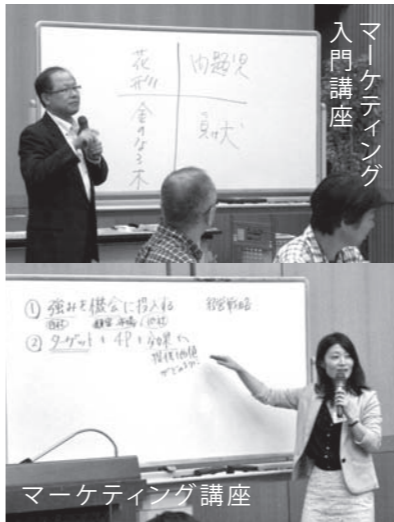 マーケティング
入門講座
花形
問題児
金のなる木
負け犬
① 強みを機会に投入する
経営戦略
自社
② ターゲット + 4P + 効果
提供価値
マーケティング講座